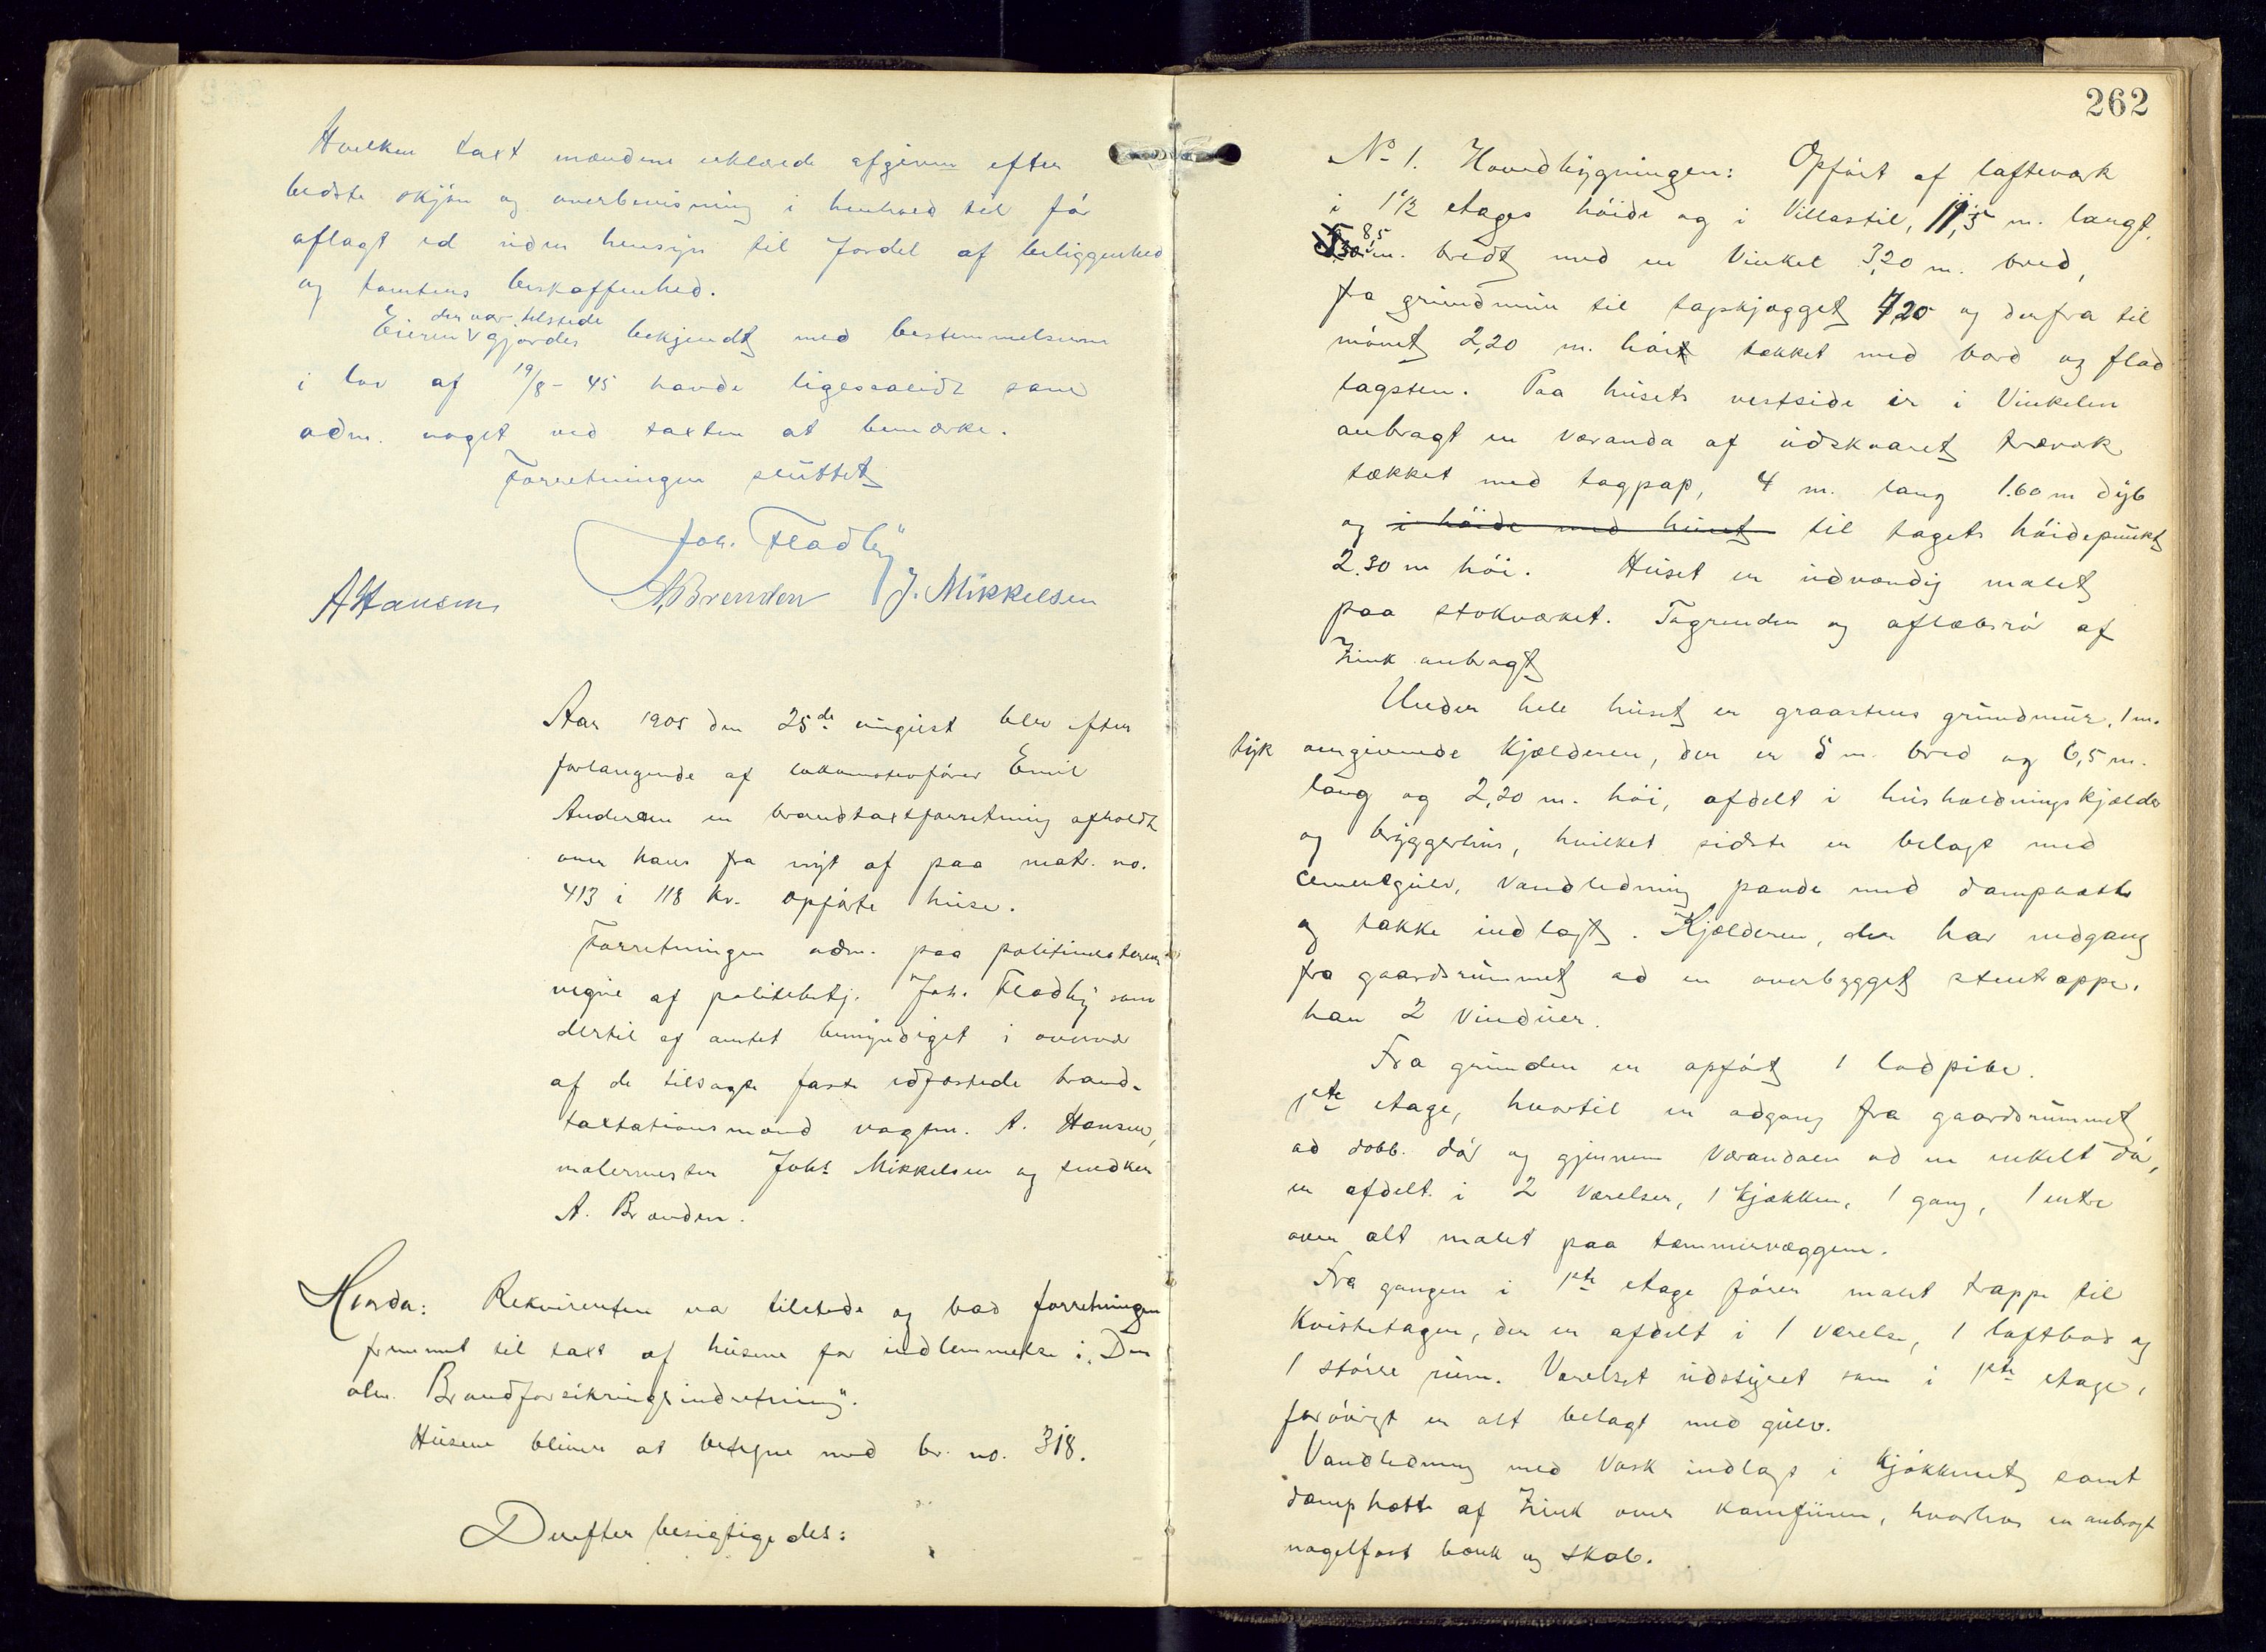 Hvilken taxt mændene erklærede afgiven efter
bedste skjøn og overbevisning i henhold til før
aflagt ed uden hensyn til fordel af beliggenhed
og tomtens beskaffenhed.
der var tilstede
Eieren v gjordes bekjendt med bestemmelserne
i lov af 19/8-45 havde ligesaalidt som
adm. noget ved taxten at bemærke.
Forretningen sluttet
Joh. Fladby
A Hansen A Brenden J. Mikkelsen
Aar 1905 den 25de august blev efter
forlangende af lokomotivfører Emil
Andersen en brandtaxtforretning afholdt
over hans fra nyt af paa matr. no.
413 i 118 kr. opførte huse.
Forretningen adm. paa politimesterens
vegne af politibetj. Joh. Fladby som
dertil af amtet bemyndiget i overvær
af de tilsagte faste edfæstede brand-
taxtationsmænd vagtm. A. Hansen,
malermester Johs Mikkelsen og snedker
A. Brenden.
Hvorda: Rekvirenten var tilstede og bad forretningen
fremmet til taxt af husene for indlemmelse i "Den
alm. Brandforsikringsindretning".
Husene bliver at betegne med br. no. 318.
Derefter besigtigedes:
262
No 1. Hovedbygningen: Opført af lafteverk
i 1 1/2 etages høide og i Villastil, 11,5 m. langt,
8,5
m. bredt med en Vinkel 3,20 m. bred,
fra grundmur til tagskjægget 4,20 og derfra til
mønet 2,20 m. høit tækket med bord og flad
tagsten. Paa husets vestside er i Vinkelen
anbragt en veranda af udskaaret træverk
tækket med tagpap, 4 m. lang 1.60 m dyb
og i høide med huset til tagets høidepunkt
2.30 m høi. Huset er udvendig malet
paa stokverket. Tagrender og afløbsrør af
Zink anbragt
Under hele huset er graastens grundmur, 1 m.
tyk omgivende Kjælderen, der er 5 m. bred og 6,5 m.
lang og 2,20 m. høi, afdelt i husholdningskjælder
og bryggerhus, hvilket sidste er belagt med
cementgulv, vandledning pande med damphætte
og takke indlagt. Kjælderen, der har nedgang
fra gaardsrummet ad en overbygget stentrappe,
har 2 Vinduer.
Fra grunden er opført 1 lodpibe.
1ste etage, hvortil er adgang fra gaardsrummet
ad dobb. dør og gjennem Verandaen ad en enkelt dør,
er afdelt i 2 Værelser, 1 kjøkken, 1 gang, 1 entre
over alt malet paa tømmervæggene.
Fra gangen i 1ste etage fører malet trappe til
Kvistetagen, der er afdelt i 1 Værelse, 1 loftbod og
1 større rum. Værelset udstyret som i 1ste etage,
forøvrigt er alt belagt med gulv.
Vandledning med Vask indlagt i kjøkkenet samt
damphætte af Zink over komfuren, hvorhos er anbragt
nagelfast bænk og skab.